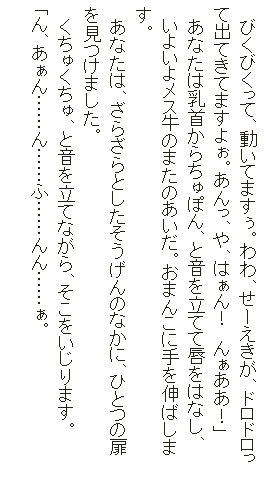 びくびくって、動いてますぅ。わわ、せーえきが、ドロドロっ
て出てきてますよぉ。あんっ、や、はぁん！　んぁああ！」
あなたは乳首からちゅぽん、と音を立てて唇をはなし、
いよいよメス牛のまたのあいだ。おまんこに手を伸ばしま
す。
あなたは、ざらざらとしたそうげんのなかに、ひとつの扉
を見つけました。
くちゅくちゅ、と音を立てながら、そこをいじります。
「ん、あぁん……ん……ふ……んん……ぁ。